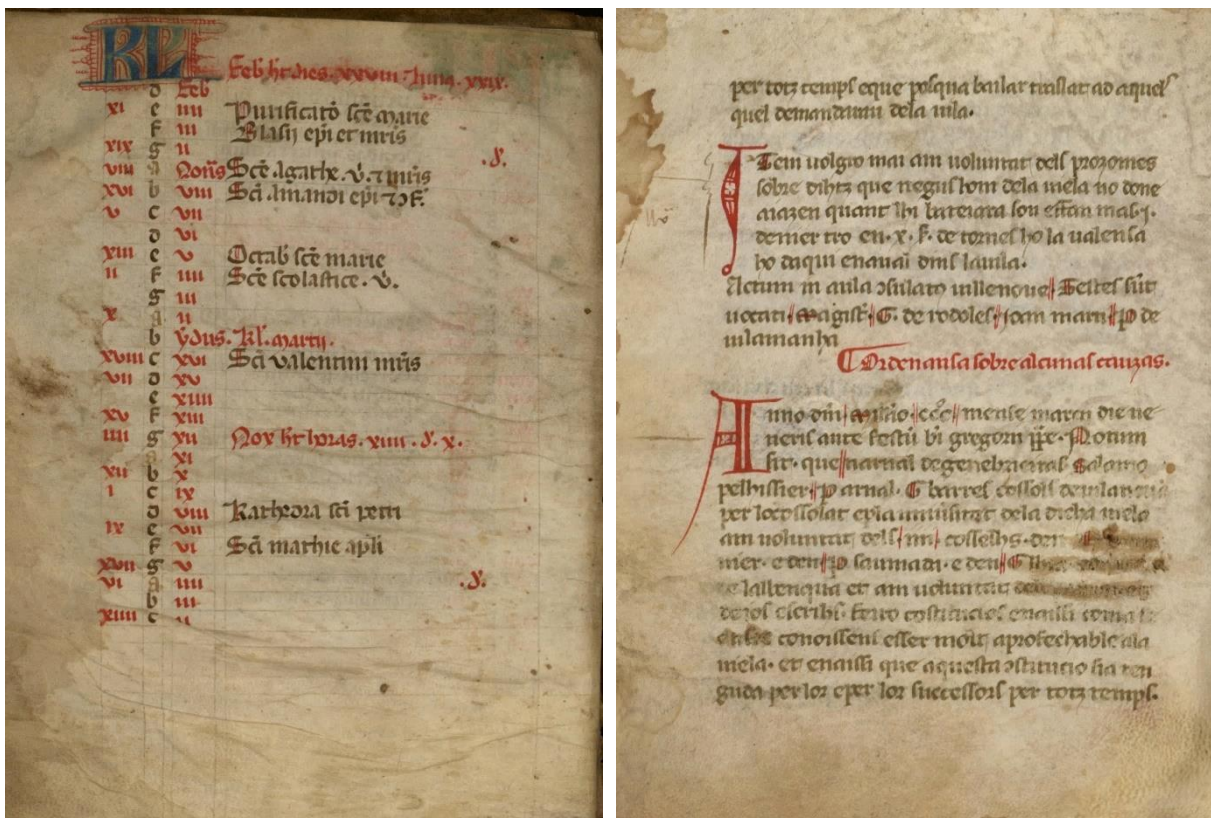 KL Feb ht dies xxviii 7 luna xxix.
d Feb
xi e iiii Purificatō scē marie
f iii Blasij epī et mrīs
xix g ii .ꝺ.
viii a Nonꝰ Scē Agathe. v̄. 7 mrīs
xvi b viii Scī Amandi epī 7 ɔf.
v c vii
d vi
xiii e v Octab scē marie
ii f iiii Scē scolastice. v̄.
g iii
x a ii
b ydus. kl. martii.
xviii c xvi Scī valentini mrīs
vii d xv
e xiiii
xv f xiii
iiii g xii Nox ht horas. xiiii. ꝺ. x.
a xi
xii b x
i c ix
d viii Kathedra scī petri
ix e vii
f vi Scī mathie aplī
xvii g v
vi a iiii .ꝺ.
b iii
xiiii c ii
per totz temps e que posqua bailar traslat ad aquel
quel demandaran dela uila.
Item uolgro mai am uoluntat dels prozomes
sobre dihtz que negus hom dela uiela no done
a razen quant lhi bateiara son effan mas j.
denier tro en. x. k. de tornes ho la ualensa
ho daqui enauāi dins la uila.
Actum in aula ɔsulato uillenoue Testes sūt
uocati magistˀ. G. de rodoles Joan marti P de
uilamanha
Ordenansa sobre alcunas cauzas.
Anno dn̄i mill̄io. ccc mense marcii die ue
neris ante festū bī gregorii pp̄e. Notum
sit. que narnal de genebrieiras Salamo
pelhissier P arnal. G barres cossols de uilanoua
per lo cossolat e per la uniuersitat dela dicha uiela
am uoluntat dels iiii cosselhs. den
nier. e den P saumadi. e den G
e lallenqua et am uoluntat
de ios escrihs. feiro costitucios enaissi coma
conoissens esser molt aprofechable ala
uiela. et enaissi que aquesta ɔstitucio sia ten
guda per lor e per lor successors per totz temps.